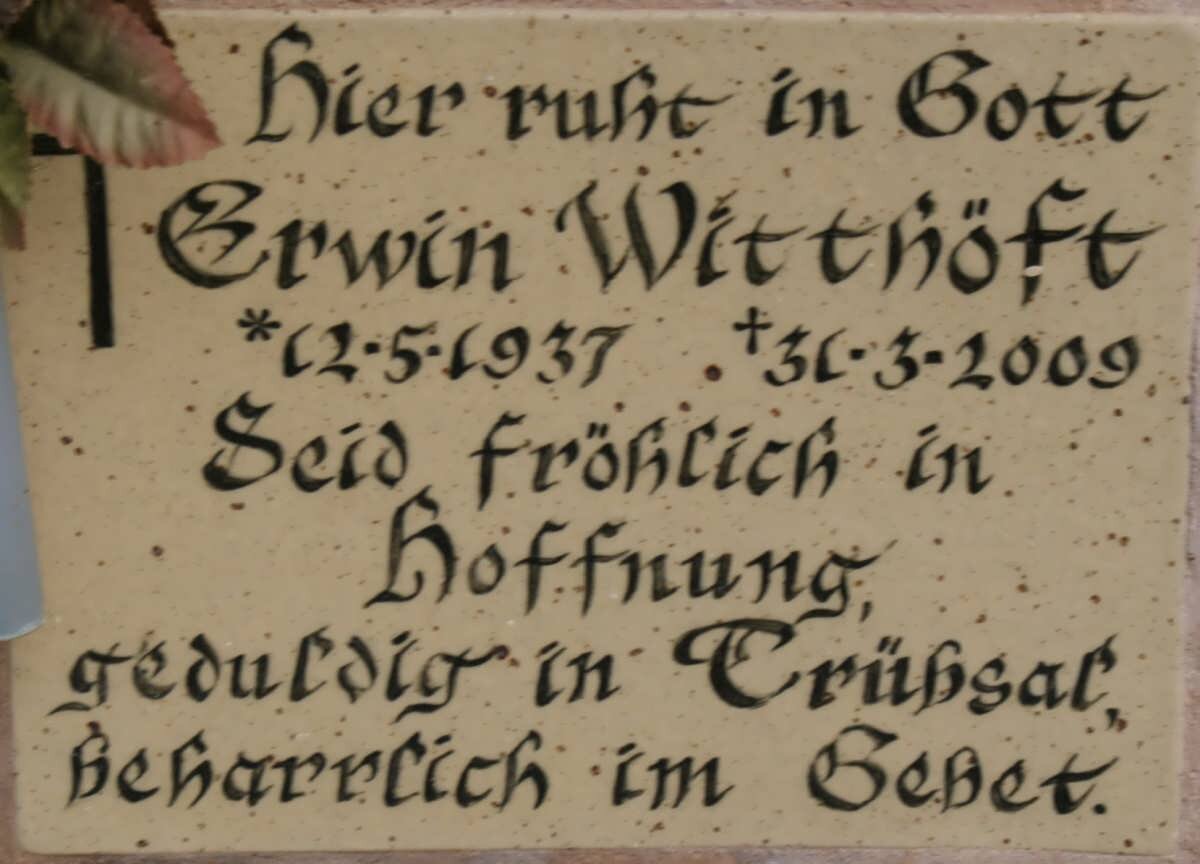 Hier ruht in Gott
Erwin Witthöft
*12·5·1937 †31·3·2009
Seid fröhlich in
Hoffnung,
geduldig in Trübsal,
beharrlich im Gebet.